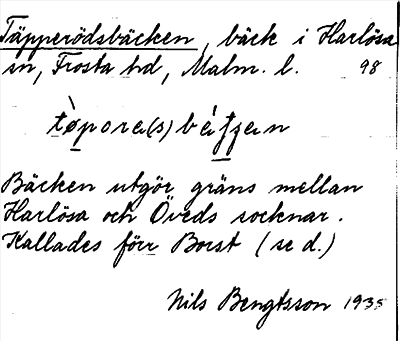 Täpperödsbäcken, bäck i Harlösa
sn, Frosta hd, Malm. l. 98
Bäcken utgör gräns mellan
Harlösa och Öveds socknar.
Kallades förr Borst (se d.)
Nils Bengtsson 1935